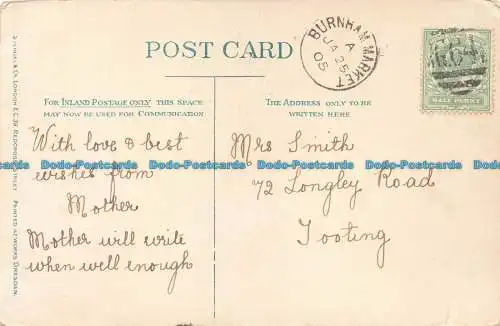 POST CARD
BURNHAM MARKET
A
JA 25
05
HALF PENNY
FOR INLAND POSTAGE ONLY THIS SPACE
MAY NOW BE USED FOR COMMUNICATION
THE ADDRESS ONLY TO BE
WRITTEN HERE
With love & best
wishes from
Mother
Mother will write
when well enough
Mrs Smith
72 Longley Road
Tooting
Dodo-Postcards Dodo-Postcards Dodo-Postcards Dodo-Postcards
PRINTED AT WORKS DRESDEN